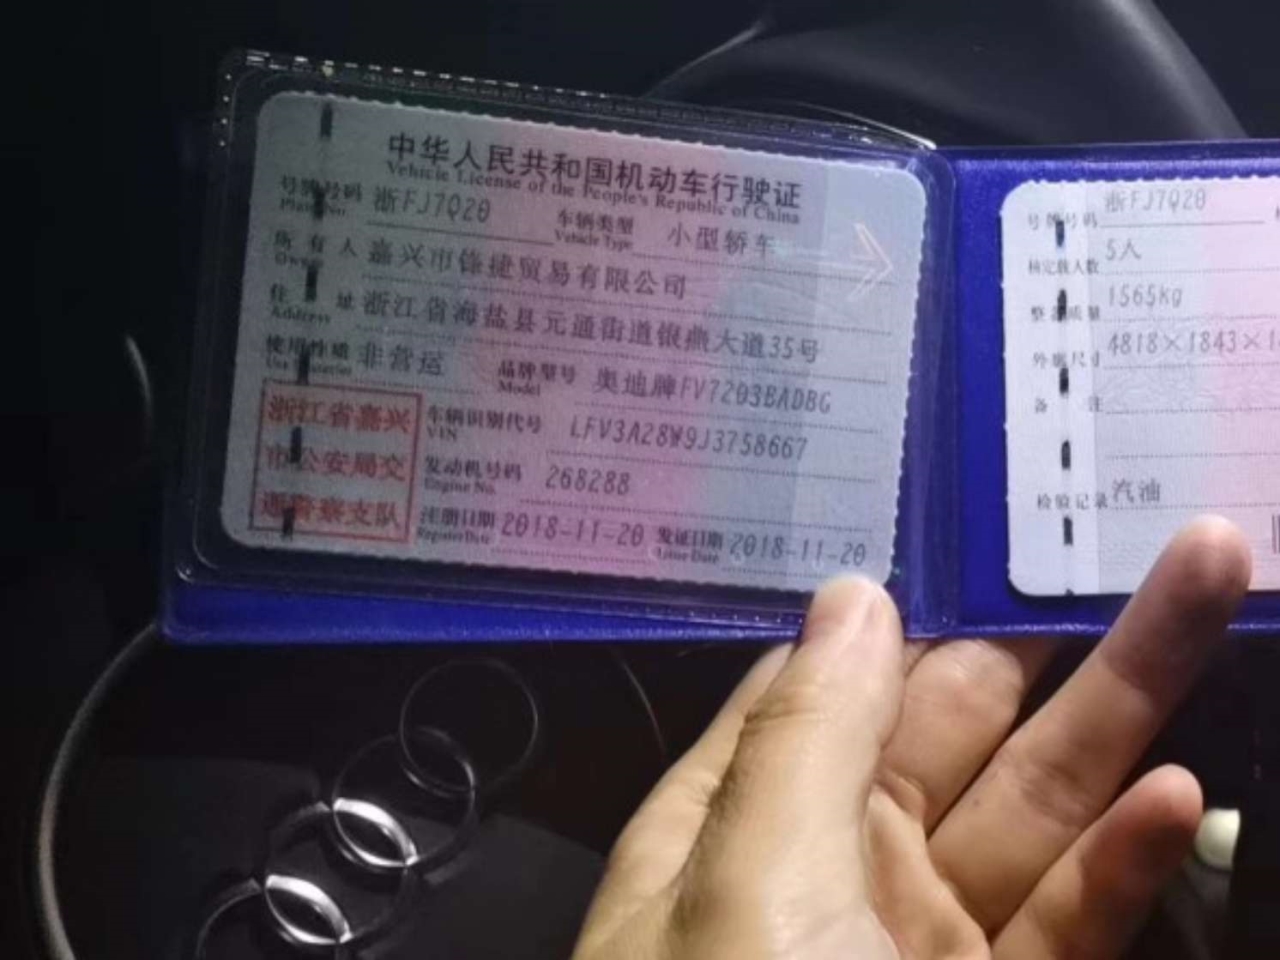 中华人民共和国机动车行驶证
Vehicle License of the People's Republic of China
号牌号码 浙FJ7Q20 车辆类型 小型轿车
Plate No. Vehicle Type
所有人 嘉兴市锋捷贸易有限公司
Owner
住址 浙江省海盐县元通街道银燕大道35号
Address
使用性质 非营运 品牌型号 奥迪牌FV7203BADBG
Use Character Model
浙江省嘉兴
市公安局交
通警察支队
车辆识别代号 LFV3A28W9J3758667
VIN
发动机号码 268288
Engine No.
注册日期 2018-11-20 发证日期 2018-11-20
Register Date Issue Date
号牌号码 浙FJ7Q20
核定载人数 5人
整备质量 1565kg
外廓尺寸 4818×1843×1
备注
检验记录 汽油